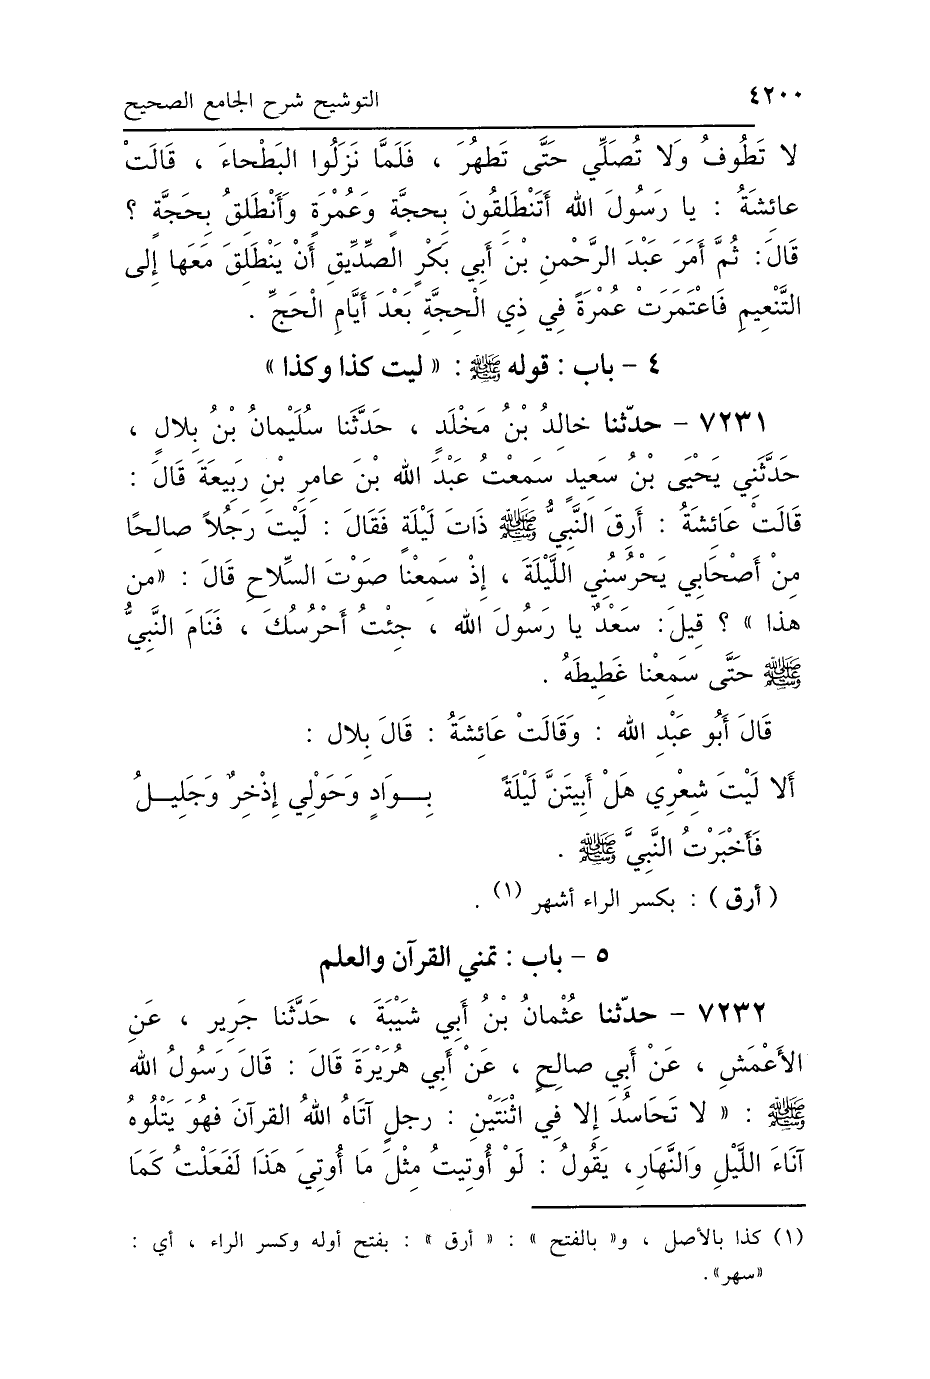 ٤٢٠٠ التوشيح شرح الجامع الصحيح
لا تَطُوفُ وَلا تُصَلِّي حَتَّى تَطهُرَ ، فَلَمَّا نَزَلُوا البَطْحاءَ ، قَالَتْ
عائِشَةُ : يا رَسُولَ الله أَتَنْطَلِقُونَ بِحجَّةٍ وَعُمْرَةٍ وَأَنْطَلِقُ بِحَجَّةٍ ؟
قَالَ: ثُمَّ أَمَرَ عَبْدَ الرَّحْمنِ بْنَ أَبي بَكْرٍ الصِّدِّيقِ أَنْ يَنْطَلِقَ مَعَها إِلى
التَّنْعِيمِ فَاعْتَمَرَتْ عُمْرَةً فِي ذِي الْحِجَّةِ بَعْدَ أَيَّامِ الْحَجِّ .
٤ - باب : قوله ﷺ : « ليت كذا وكذا »
٧٢٣١ - حدّثنا خالِدُ بْنُ مَخْلَدٍ ، حَدَّثَنا سُلَيْمانُ بْنُ بِلالٍ ،
حَدَّثَنِي يَحْيَى بْنُ سَعِيدٍ سَمِعْتُ عَبْدَ الله بْنَ عامِرِ بْنِ رَبِيعَةَ قَالَ :
قَالَتْ عَائِشَةُ : أَرِقَ النَّبِيُّ ﷺ ذَاتَ لَيْلَةٍ فَقَالَ : لَيْتَ رَجُلاً صالِحًا
مِنْ أَصْحَابي يَحْرُسُنِي اللَّيْلَةَ ، إِذْ سَمِعْنا صَوْتَ السِّلاحِ قَالَ : «من
هذا » ؟ قِيلَ: سَعْدٌ يا رَسُولَ الله ، جِئْتُ أَحْرُسُكَ ، فَنَامَ النَّبِيُّ
ﷺ حَتَّى سَمِعْنا غَطِيطَهُ .
قَالَ أَبُو عَبْدِ الله : وَقَالَتْ عَائِشَةُ : قَالَ بِلال :
أَلا لَيْتَ شِعْرِي هَلْ أَبِيتَنَّ لَيْلَةً بِـــوَادٍ وَحَوْلِي إِذْخِرٌ وَجَلِيــلُ
فَأَخْبَرْتُ النَّبِيَّ ﷺ .
( أرق ) : بكسر الراء أشهر (١) .
٥ - باب : تمني القرآن والعلم
٧٢٣٢ - حدّثنا عُثْمانُ بْنُ أَبِي شَيْبَةَ ، حَدَّثَنا جَرِير ، عَنِ
الأَعْمَشِ ، عَنْ أَبِي صالِحٍ ، عَنْ أَبي هُرَيْرَةَ قَالَ : قَالَ رَسُولُ الله
ﷺ : « لا تَحَاسُدَ إِلا فِي اثْنَتَيْنِ : رجلٍ آتَاهُ اللهُ القرآنَ فهُوَ يَتْلُوهُ
آنَاءَ اللَّيْلِ وَالنَّهَارِ، يَقُولُ : لَوْ أُوتِيتُ مِثْلَ مَا أُوتِيَ هَذَا لَفَعَلْتُ كَمَا
(١) كذا بالأصل ، و« بالفتح » : « أرق » : بفتح أوله وكسر الراء ، أي :
«سهر».